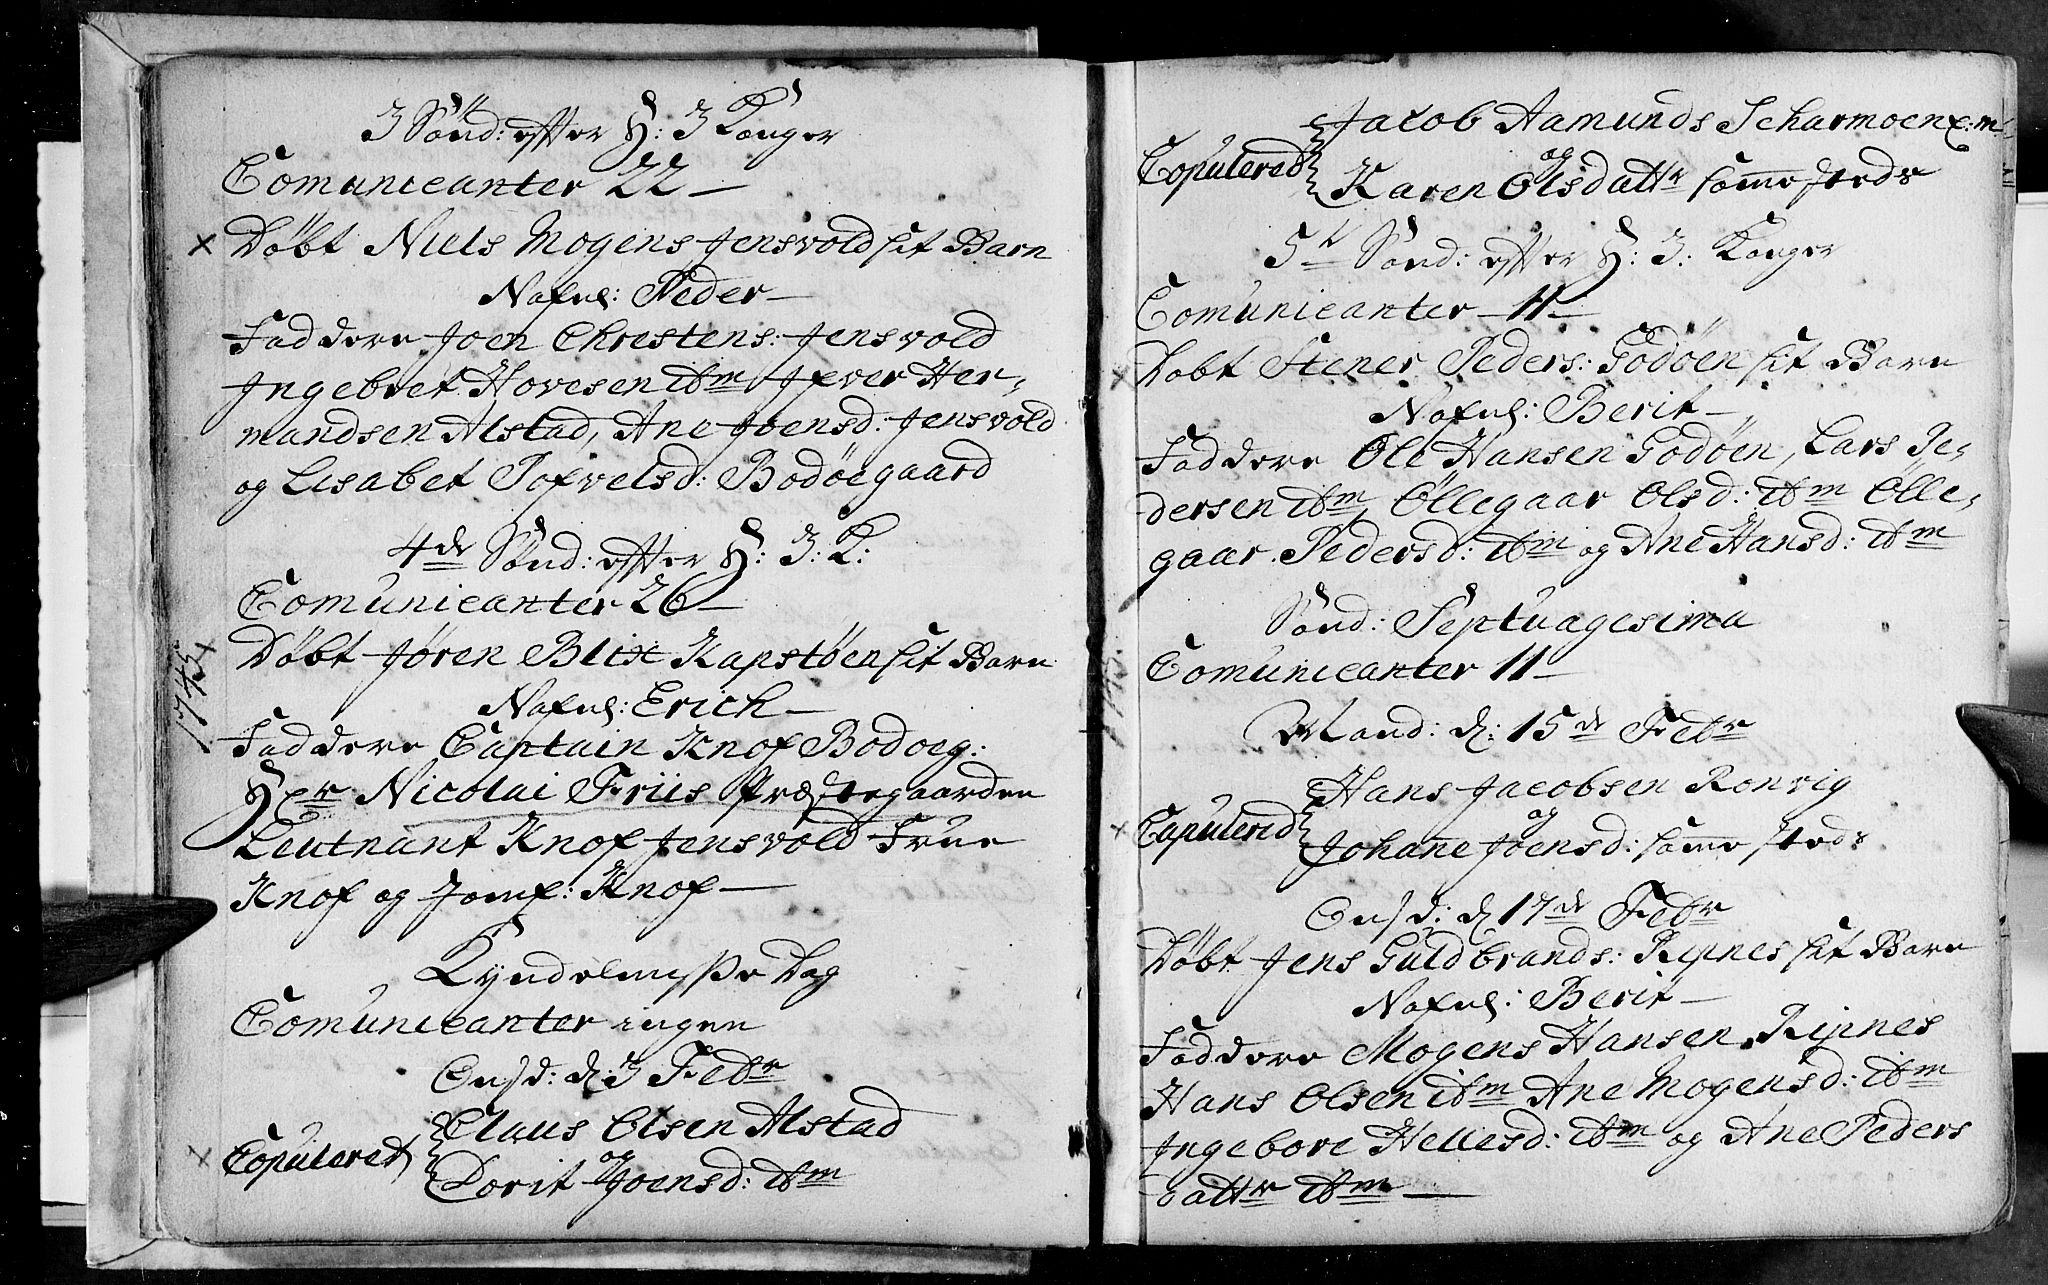 3 Sönd: efter H: 3 Konger
Comunicanter 22 —
x Döbt Niels Mogens Jensvold sit Barn
Nafnl: Peder —
Faddere Joen Chrestens: Jensvold
Ingebret Hovesen ibm Ifver Her,
mandsen Alstad, Ane Joensd: Jensvold
og Lisabet Pofvelsd: Bodöegaard
4de Sönd: efter H: 3: K:
Comunicanter 26 —
1745 x
Döbt Jören Blix Kapstöen sit Barn
Nafnl: Erich —
Faddere Captain Knof Bodoeg:
Her Nicolai Friis Præstegaarden
Leutnant Knof Jensvold Frue
Knof og Jomf: Knof —
Kyndelmysse Dag
Comunicanter ingen
Onsd: d: 3 Febr
x Copuleret { Claus Olsen Alstad
og
Dorit Joensd: ibm
Copulered { Jacob Aamunds Scharmoen e: m
og
Karen Olsdattr samme steds
5te Sönd: efter H: 3: Konger
Comunicanter — 11 —
x Döbt Stener Peders: Godöen sit Barn
Nafnl: Berit —
Faddere Ole Hansen Godöen, Lars Pe,
dersen ibm, Öllegaar Olsd: ibm Ölle,
gaar Pedersd: ibm og Ane Hansd: ibm
Sönd: Septuagesima
Comunicanter 11 —
Mand: d: 15de Febr
x Copulered { Hans Jacobsen Ronvig
og
Johane Joensd: samme steds
Onsd: d 17de Febr
Döbt Jens Guldbrands: Ripnes sit Barn
Nafnl: Berit —
Faddere Mogens Hansen Ripnes
Hans Olsen ibm Ane Mogensd: ibm
Ingebore Hellesd: ibm og Ane Peders
dattr ibm —